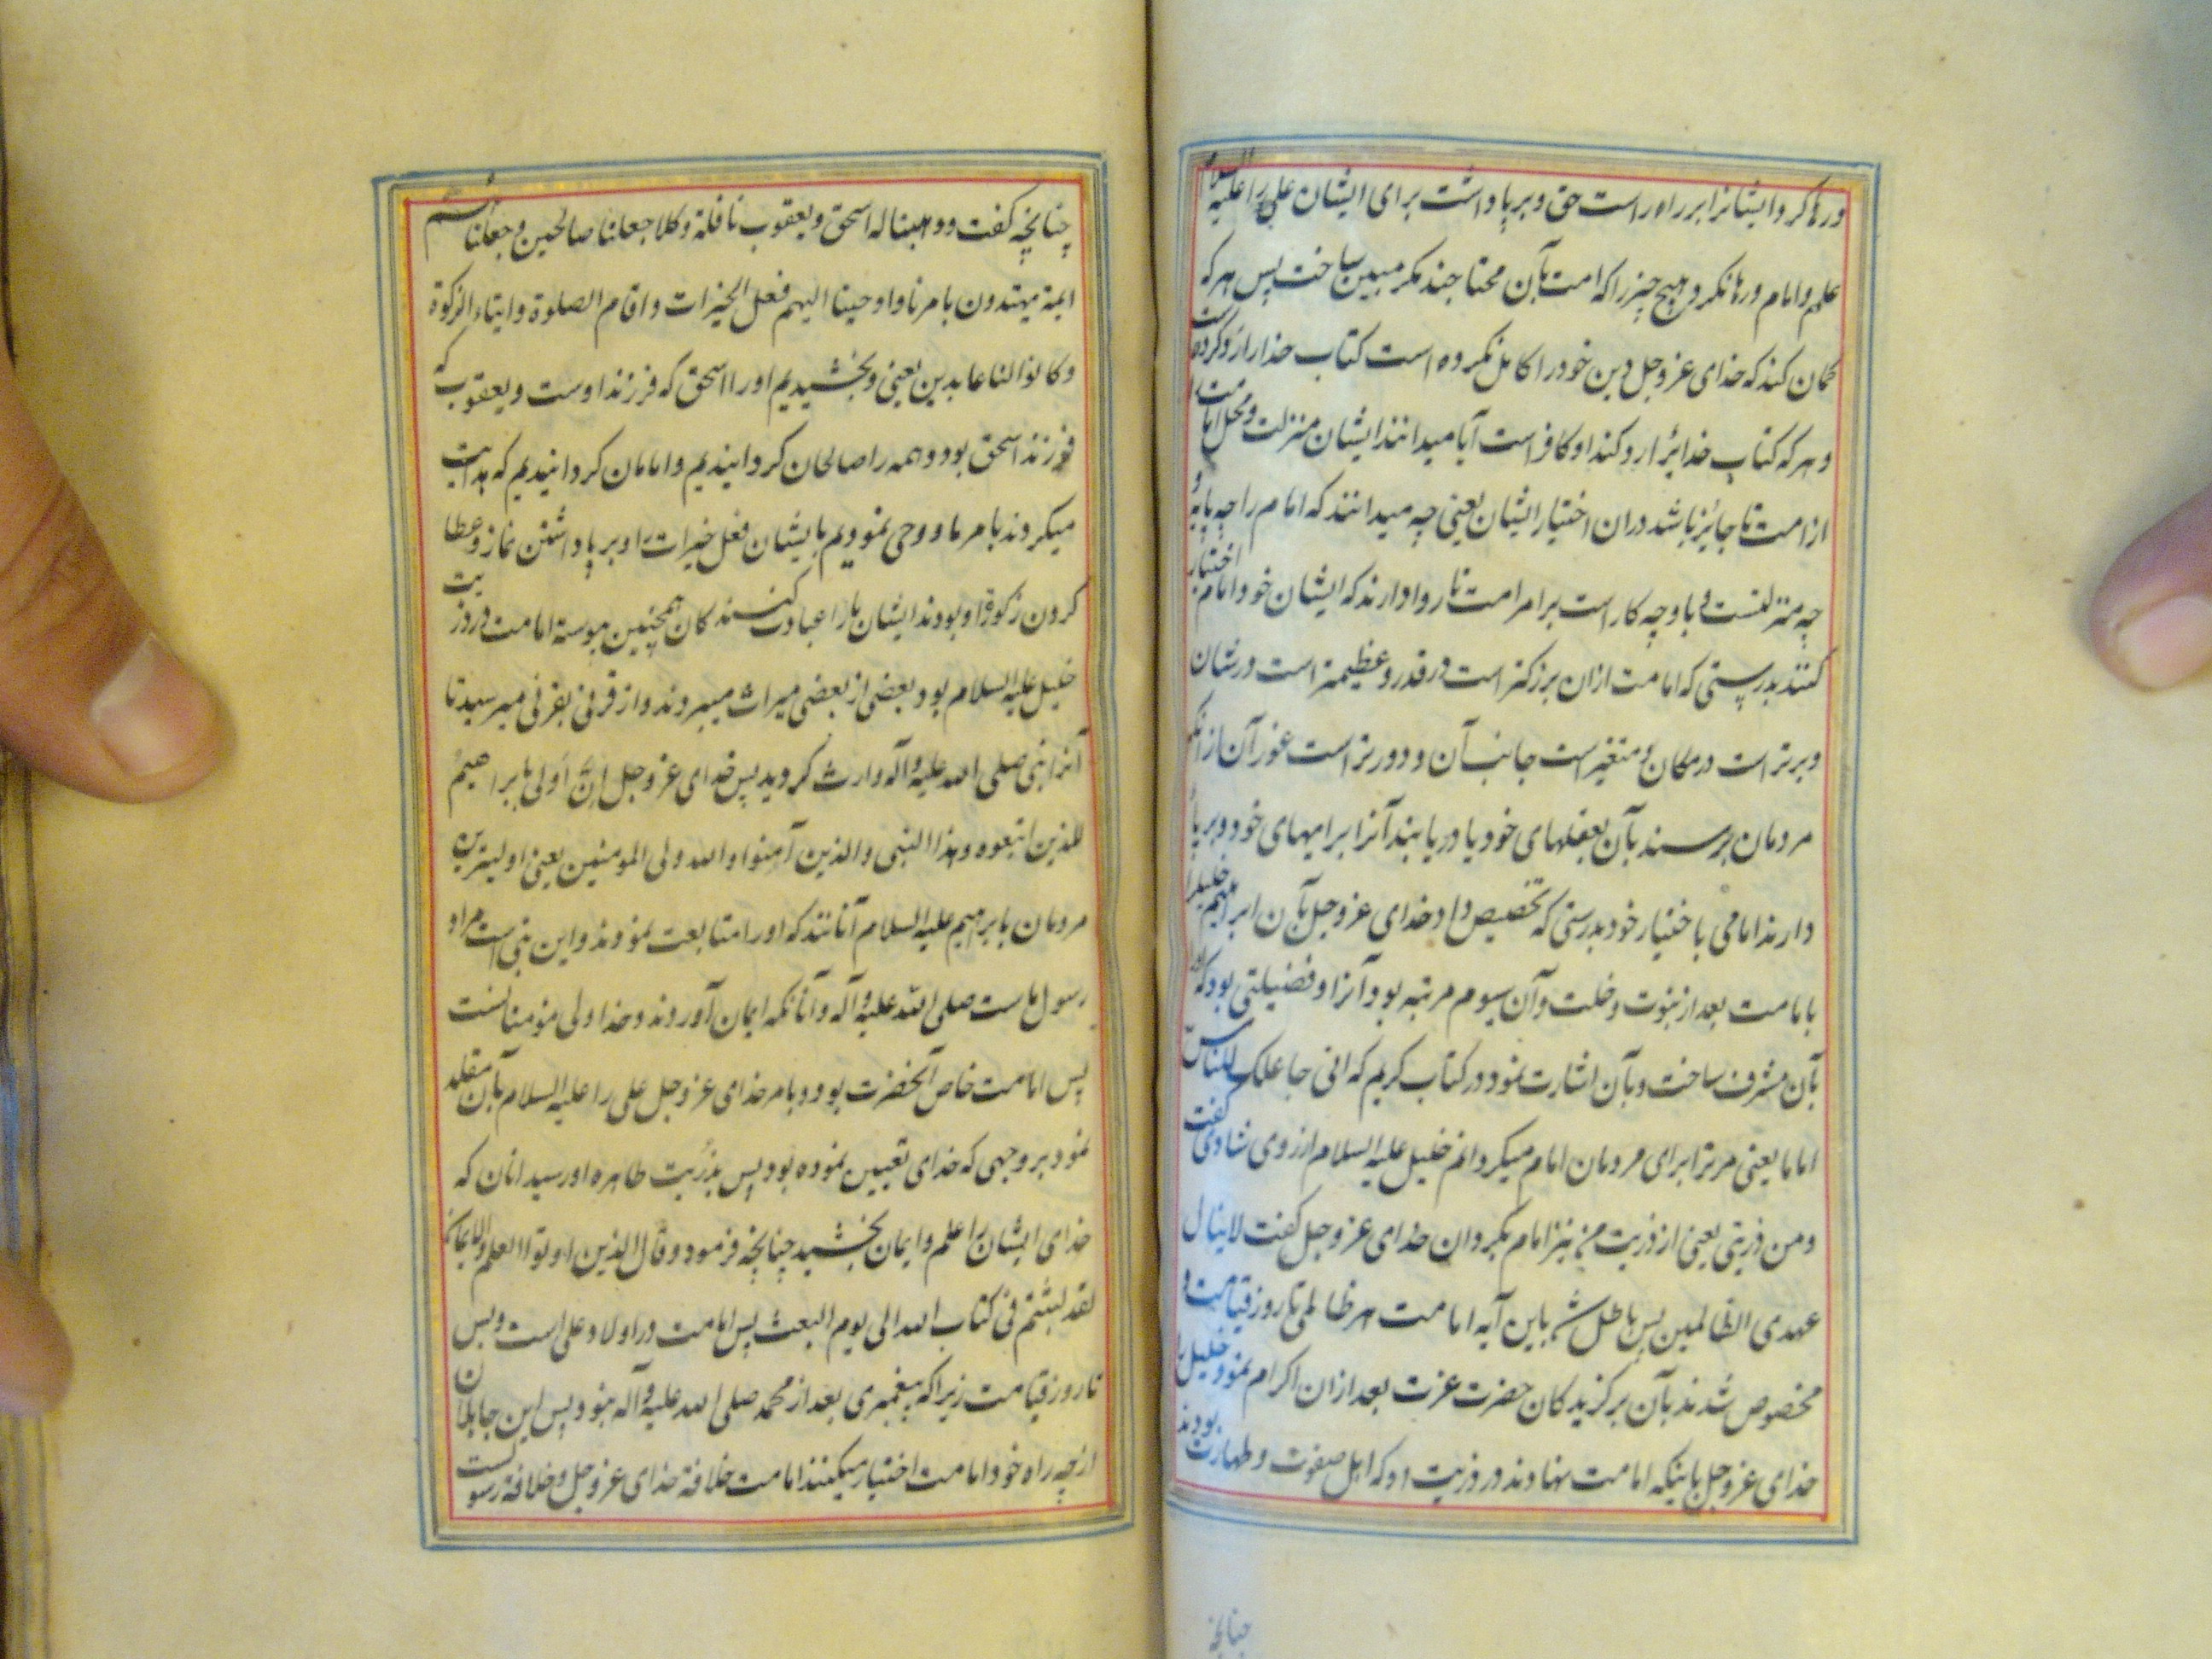 ورها کرد ایشانرا بر راه راست حق و برپا داشت برای ایشان علی را علیه السلام
علم و امام و رها نکرد هیچ چیز را که امت بآن محتاجند مگر مبین ساخت پس هر که
گمان کند که خدای عز و جل دین خود را کامل نکرده است کتاب خدا را رد کرده است
و هر که کتاب خدایرا رد کند او کافر است آیا میدانند ایشان منزلت و محل امامت را
از امت تا جائز باشد در آن اختیار ایشان یعنی چه میدانند که امام را چه پایه و
چه منزلتست و با و چه کار است بر امر امت تا روا دارند که ایشان خود امام اختیار
کنند بدرستی که امامت از آن بزرگتر است در قدر و عظیمتر است در شان
و برتر است در مکان و است جانب آن و دورتر است غور آن از آنکه
مردمان برسند بآن بعقلهای خود یا دریابند آنرا برایهای خود و برپا
دارند امامی باختیار خود بدرستی که تخصیص داد خدای عز و جل بآن ابراهیم خلیلرا
بامامت بعد از نبوت و خلت و آن سیوم مرتبه بود آنرا و فضیلتی بود که او را
بآن مشرف ساخت و بآن اشارت نمود در کتاب کریم که انی جاعلک للناس
اماما یعنی مر ترا برای مردمان امام میگردانم خلیل علیه السلام از روی شادی گفت
و من ذریتی یعنی از ذریت من نیز امام بگردان خدای عز و جل گفت لا ینال
عهدی الظالمین پس باطل شد باین آیه امامت هر ظالمی تا روز قیامت و
مخصوص شدند بآن برگزیدگان حضرت عزت بعد از ان اکرام نمود خلیل را
خدای عز و جل باینکه امامت نهادند در ذریت او که اهل صفوت و طهارت بودند
چنانچه
چنانچه گفت و وهبنا له اسحق و یعقوب نافلة و کلا جعلنا صالحین و جعلناهم
ایمة یهتدون بامرنا و اوحینا الیهم فعل الخیرات و اقام الصلوة و ایتاء الزکوة
و کانوا لنا عابدین یعنی و بخشیدیم او را اسحق که فرزند اوست و یعقوب که
فرزند اسحق بود و همه را صالحان گردانیدیم و امامان گردانیدیم که هدایت
میکردند بامر ما و وحی نمودیم بایشان فعل خیرات را و برپا داشتن نماز و عطا
کردن زکوة را و بودند ایشان ما را عبادت کنندگان همچنین پیوسته امامت در ذریت
خلیل علیه السلام بود بعضی از بعضی میراث میبردند و از قرنی بقرنی میرسید تا
آنرا نبی صلی الله علیه و آله وارث گردید پس خدای عز و جل إنّ أولی بابراهیم
للذین اتبعوه و هذا النبی و الذین آمنوا و الله ولی المومنین یعنی اولیترین
مردمان بابرهیم علیه السلام آنانند که او را متابعت نمودند و این نبی است مراد
رسول ماست صلی الله علیه و آله و آنانکه ایمان آوردند و خدا ولی مومنانست
پس امامت خاص آنحضرت بود و بامر خدای عز و جل علی را علیه السلام بآن مقلد
نمود بر وجهی که خدای تعیین نموده بود پس بذریت طاهره او رسید آنان که
خدای ایشان را علم و ایمان بخشید چنانچه فرمود و قال الذین اوتوا العلم و الایمان
لقد لبثتم فی کتاب الله الی یوم البعث پس امامت در اولاد علی است و بس
تا روز قیامت زیرا که پیغمبری بعد از محمد صلی الله علیه و آله نبود پس این جاهلان
از چه راه خود امامت اختیار میکنند امامت خلافة خدای عز و جل و خلافة رسولست